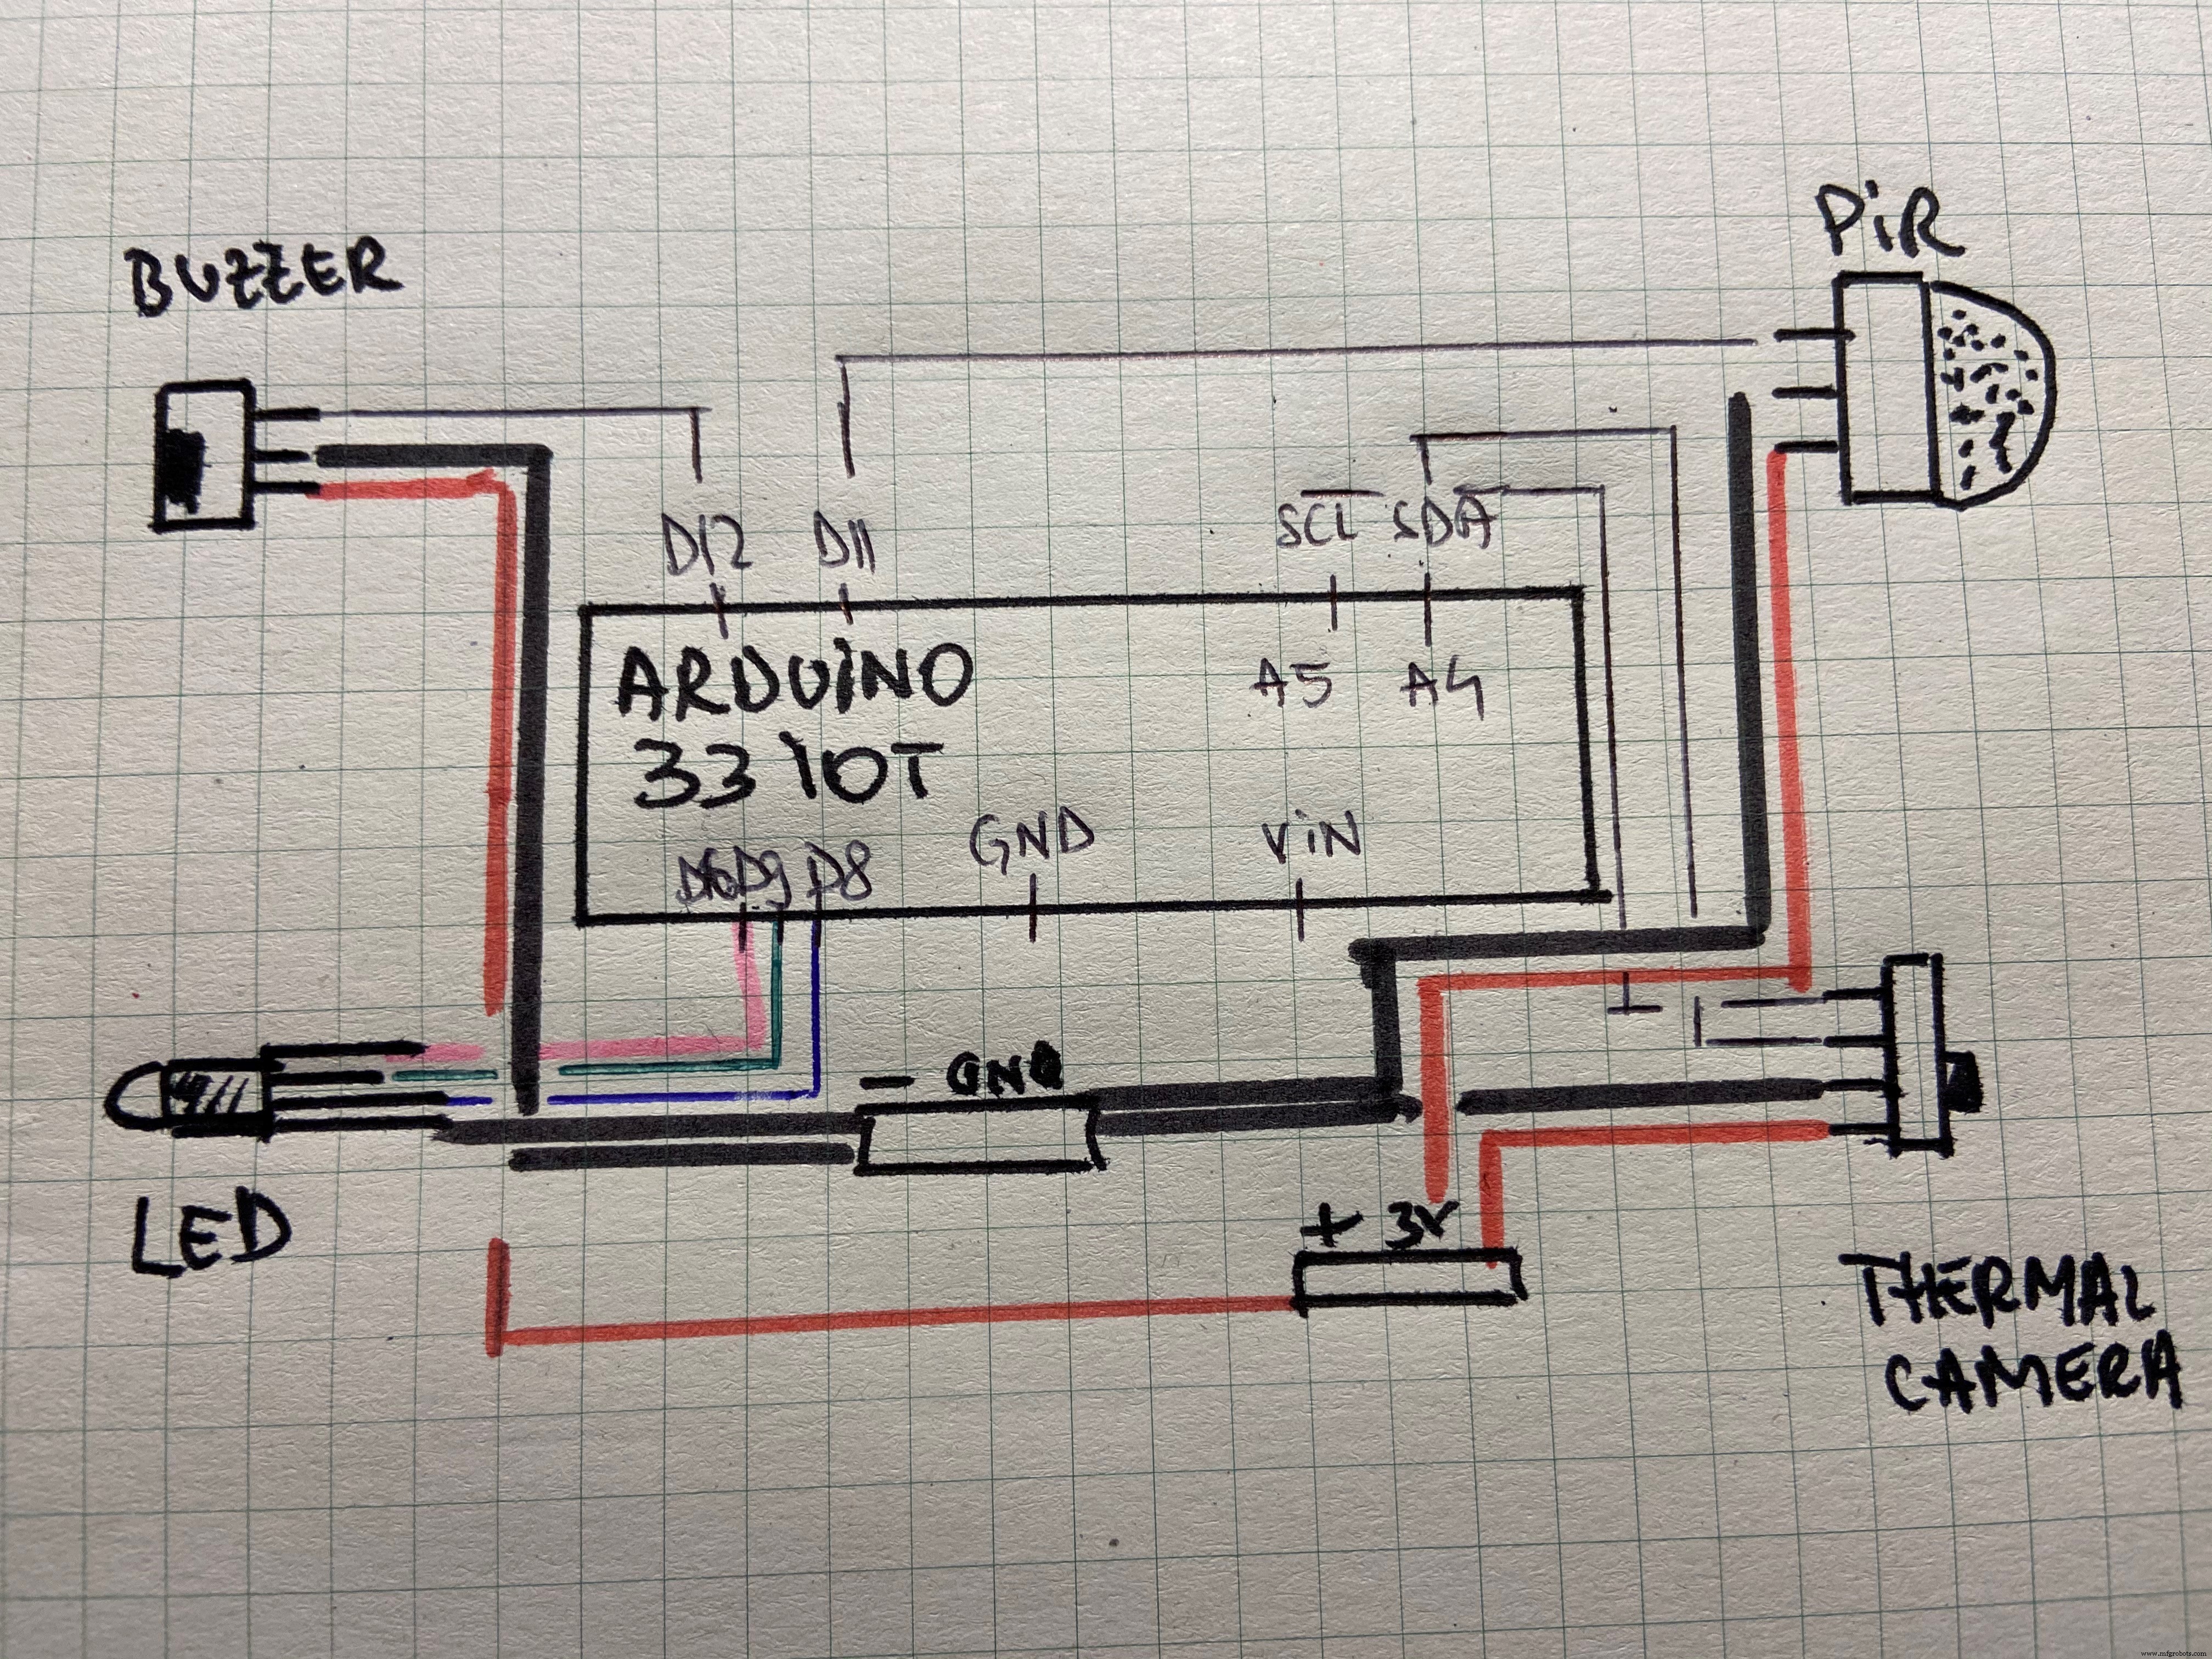 PiR
BUZZER
D12 D11 SCL SDA
ARDUiNO
A5 A4
33 IOT
GND ViN
D9 D8
- GND
+ 3V
LED
THERMAL
CAMERA
www.mfgrobots.com